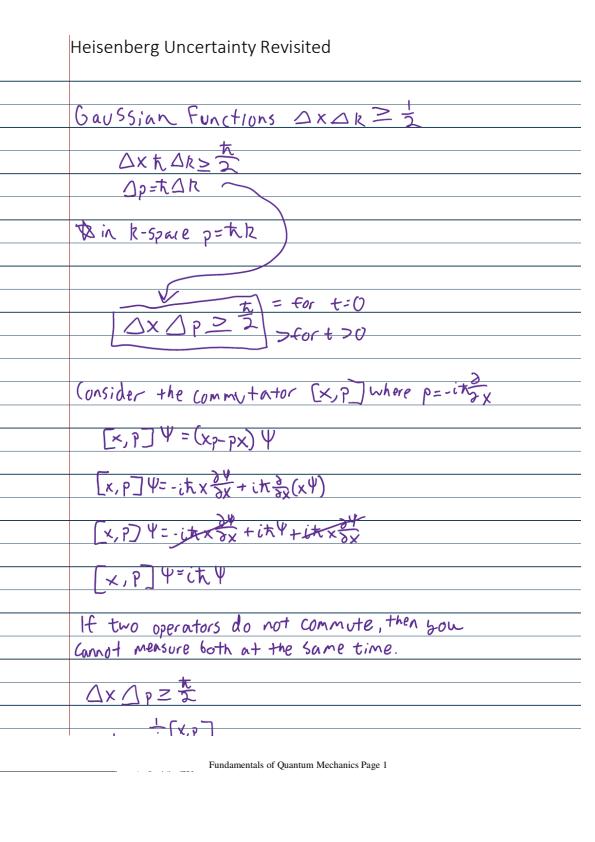 Heisenberg Uncertainty Revisited
Gaussian Functions Δx Δk ≥ 1/2
Δx ħ Δk ≥ ħ/2
Δp = ħΔk
☆ in k-space p = ħk
Δx Δp ≥ ħ/2 = for t=0
> for t > 0
Consider the commutator [x,p] where p = -iħ ∂/∂x
[x,p] Ψ = (xp-px) Ψ
[x,p] Ψ = -iħ x ∂Ψ/∂x + iħ ∂/∂x (xΨ)
[x,p] Ψ = -iħ x ∂Ψ/∂x + iħΨ + iħ x ∂Ψ/∂x
[x,p] Ψ = iħ Ψ
If two operators do not commute, then you
cannot measure both at the same time.
Δx Δp ≥ ħ/2
[x,p]
Fundamentals of Quantum Mechanics Page 1